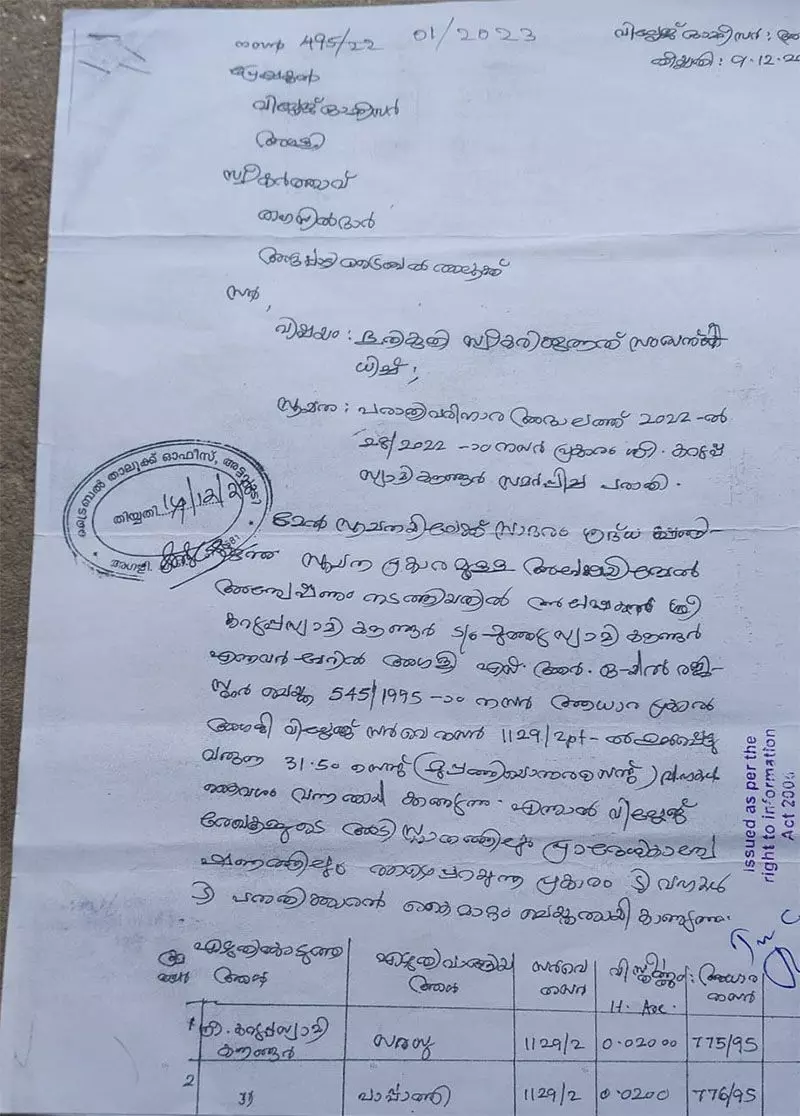 നമ്പർ 495/22 01/2023
വില്ലേജ് ഓഫീസർ : അ
തീയ്യതി : 9.12.20
പ്രേഷകൻ
വില്ലേജ് ഓഫീസർ
അഗളി
സ്വീകർത്താവ്
തഹസിൽദാർ
അട്ടപ്പാടി ട്രൈബൽ താലൂക്ക്
സർ,
വിഷയം : ഭൂനികുതി സ്വീകരിക്കുന്നത് സംബന്ധി
ധിച്ച് ;
സൂചന : പരാതിപരിഹാര അദാലത്ത് 2022-ൽ
28/2022 -ാം നമ്പർ പ്രകാരം ശ്രീ. കറുപ്പ
സ്വാമി കൗണ്ടർ സമർപ്പിച്ച പരാതി.
ട്രൈബൽ താലൂക്ക് ഓഫീസ്, അട്ടപ്പാടി
തിയ്യതി
അഗളി.
മേൽ സൂചനയിലേക്ക് സാദരം ശ്രദ്ധ ക്ഷണി-
ക്കുന്നു സൂചന പ്രകാരമുള്ള അപേക്ഷയിന്മേൽ
അന്വേഷണം നടത്തിയതിൽ അപേക്ഷകൻ ശ്രീ
കറുപ്പസ്വാമി കൗണ്ടർ S/o മുത്തുസ്വാമി കൗണ്ടർ
എന്നവർ പേരിൽ അഗളി എസ്. ആർ. ഒ-യിൽ രജി-
സ്റ്റർ ചെയ്ത 545/1995 -ാം നമ്പർ ആധാര പ്രകാരം
അഗളി വില്ലേജ് സർവെ നമ്പർ 1129/2pt-ൽ ഉൾപ്പെട്ടു
വരുന്ന 31.50 സെന്റ് (മുപ്പത്തിയൊന്നര സെന്റ്) വസ്തു
കൈവശം വന്നതായി കാണുന്നു. എന്നാൽ വില്ലേജ്
രേഖകളുടെ അടിസ്ഥാനത്തിലും പ്രാദേശികാന്വേ
ഷണത്തിലും താഴെപറയുന്ന പ്രകാരം ടി വസ്തു
ടി പരാതിക്കാരൻ കൈമാറ്റം ചെയ്തതായി കാണുന്നു.
issued as per the
right to information
Act 2005
ക്രമ നമ്പർ | എഴുതികൊടുത്ത ആൾ | എഴുതിവാങ്ങിയ ആൾ | സർവെ നമ്പർ | വിസ്തീർണ്ണം H. Are. | ആധാര നമ്പർ
1 | ശ്രീ. കറുപ്പസ്വാമി കൗണ്ടർ | സരസു | 1129/2 | 0.0200 | 775/95
2 | " | പാപ്പാത്തി | 1129/2 | 0.0200 | 776/95